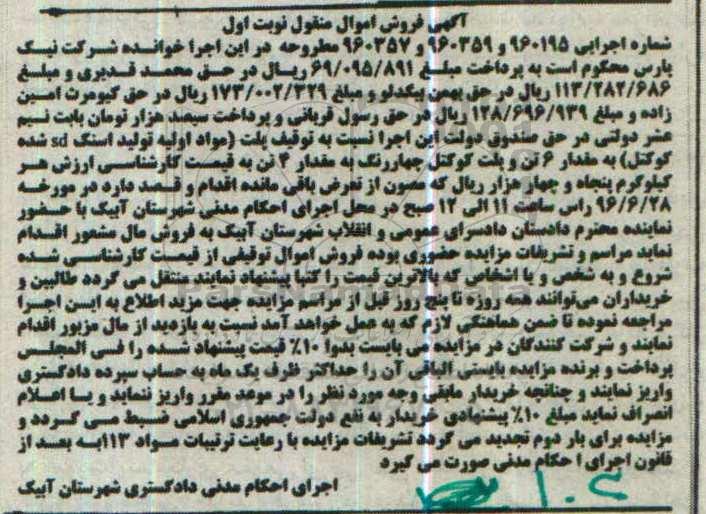 آگهی فروش اموال منقول نوبت اول
شماره اجرایی ۹۶۰۱۹۵ و ۹۶۰۳۵۹ و ۹۶۰۳۵۷ مطروحه در این اجرا خوانده شرکت نیک
پارس محکوم است به پرداخت مبلغ ۶۹/۰۹۵/۸۹۱ ریال در حق محمد قدیری و مبلغ
۱۱۳/۲۸۲/۶۸۶ ریال در حق بهمن بیکدلو و مبلغ ۱۷۳/۰۰۲/۳۲۹ ریال در حق کیومرث امین
زاده و مبلغ ۱۲۸/۶۹۶/۹۳۹ ریال در حق رسول قربانی و پرداخت سیصد هزار تومان بابت نیم
عشر دولتی در حق صندوق دولت این اجرا نسبت به توقیف پلت (مواد اولیه تولید اسنک sd شده
کوکتل) به مقدار ۶ تن و پلت کوکتل چهاررنگ به مقدار ۴ تن به قیمت کارشناسی ارزش هر
کیلوگرم پنجاه و چهار هزار ریال که مصون از تعرض باقی مانده اقدام و قصد دارد در مورخه
۹۶/۶/۲۸ راس ساعت ۱۱ الی ۱۲ صبح در محل اجرای احکام مدنی شهرستان آبیک با حضور
نماینده محترم دادستان دادسرای عمومی و انقلاب شهرستان آبیک به فروش مال مشعور اقدام
نماید مراسم و تشریفات مزایده حضوری بوده فروش اموال توقیفی از قیمت کارشناسی شده
شروع و به شخص و یا اشخاص که بالاترین قیمت را کتبا پیشنهاد نمایند منتقل می گردد طالبین و
خریداران می‌توانند همه روزه تا پنج روز قبل از مراسم مزایده جهت مزید اطلاع به این اجرا
مراجعه نموده تا ضمن هماهنگی لازم که به عمل خواهد آمد نسبت به بازدید از مال مزبور اقدام
نمایند و شرکت کنندگان در مزایده می بایست بدوا ۱۰٪ قیمت پیشنهاد شده را فی المجلس
پرداخت و برنده مزایده بایستی الباقی آن را حداکثر ظرف یک ماه به حساب سپرده دادگستری
واریز نمایند و چنانچه خریدار مابقی وجه مورد نظر را در موعد مقرر واریز ننماید و یا اعلام
انصراف نماید مبلغ ۱۰٪ پیشنهادی خریدار به نفع دولت جمهوری اسلامی ضبط می گردد و
مزایده برای بار دوم تجدید می گردد تشریفات مزایده با رعایت ترتیبات مواد ۱۱۳به بعد از
قانون اجرای ا حکام مدنی صورت می گیرد
اجرای احکام مدنی دادگستری شهرستان آبیک